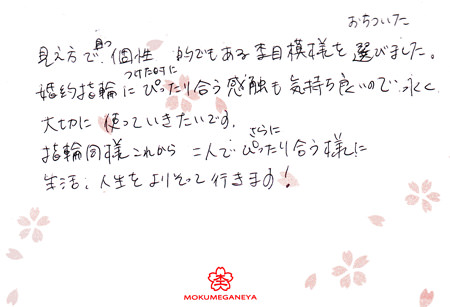 おちついた
見え方で且つ個性 的でもある杢目模様を選びました。
つけた時に
婚約指輪にぴったり合う感触も気持ち良いので永く
大切に使っていきたいです。
さらに
指輪同様これから 二人でぴったり合う様に
生活、人生をよりそって行きます!
MOKUMEGANEYA